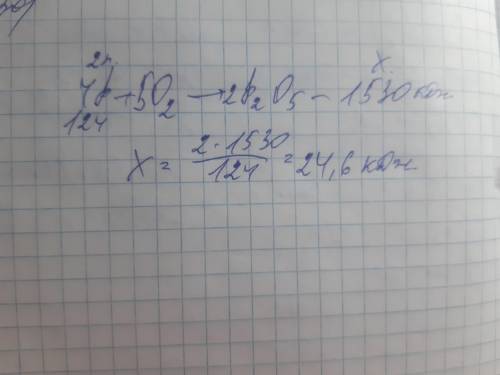 2г. X
4P + 5O₂ → 2P₂O₅ - 1530 кДж
124
X = 2·1530 / 124 = 24,6 кДж